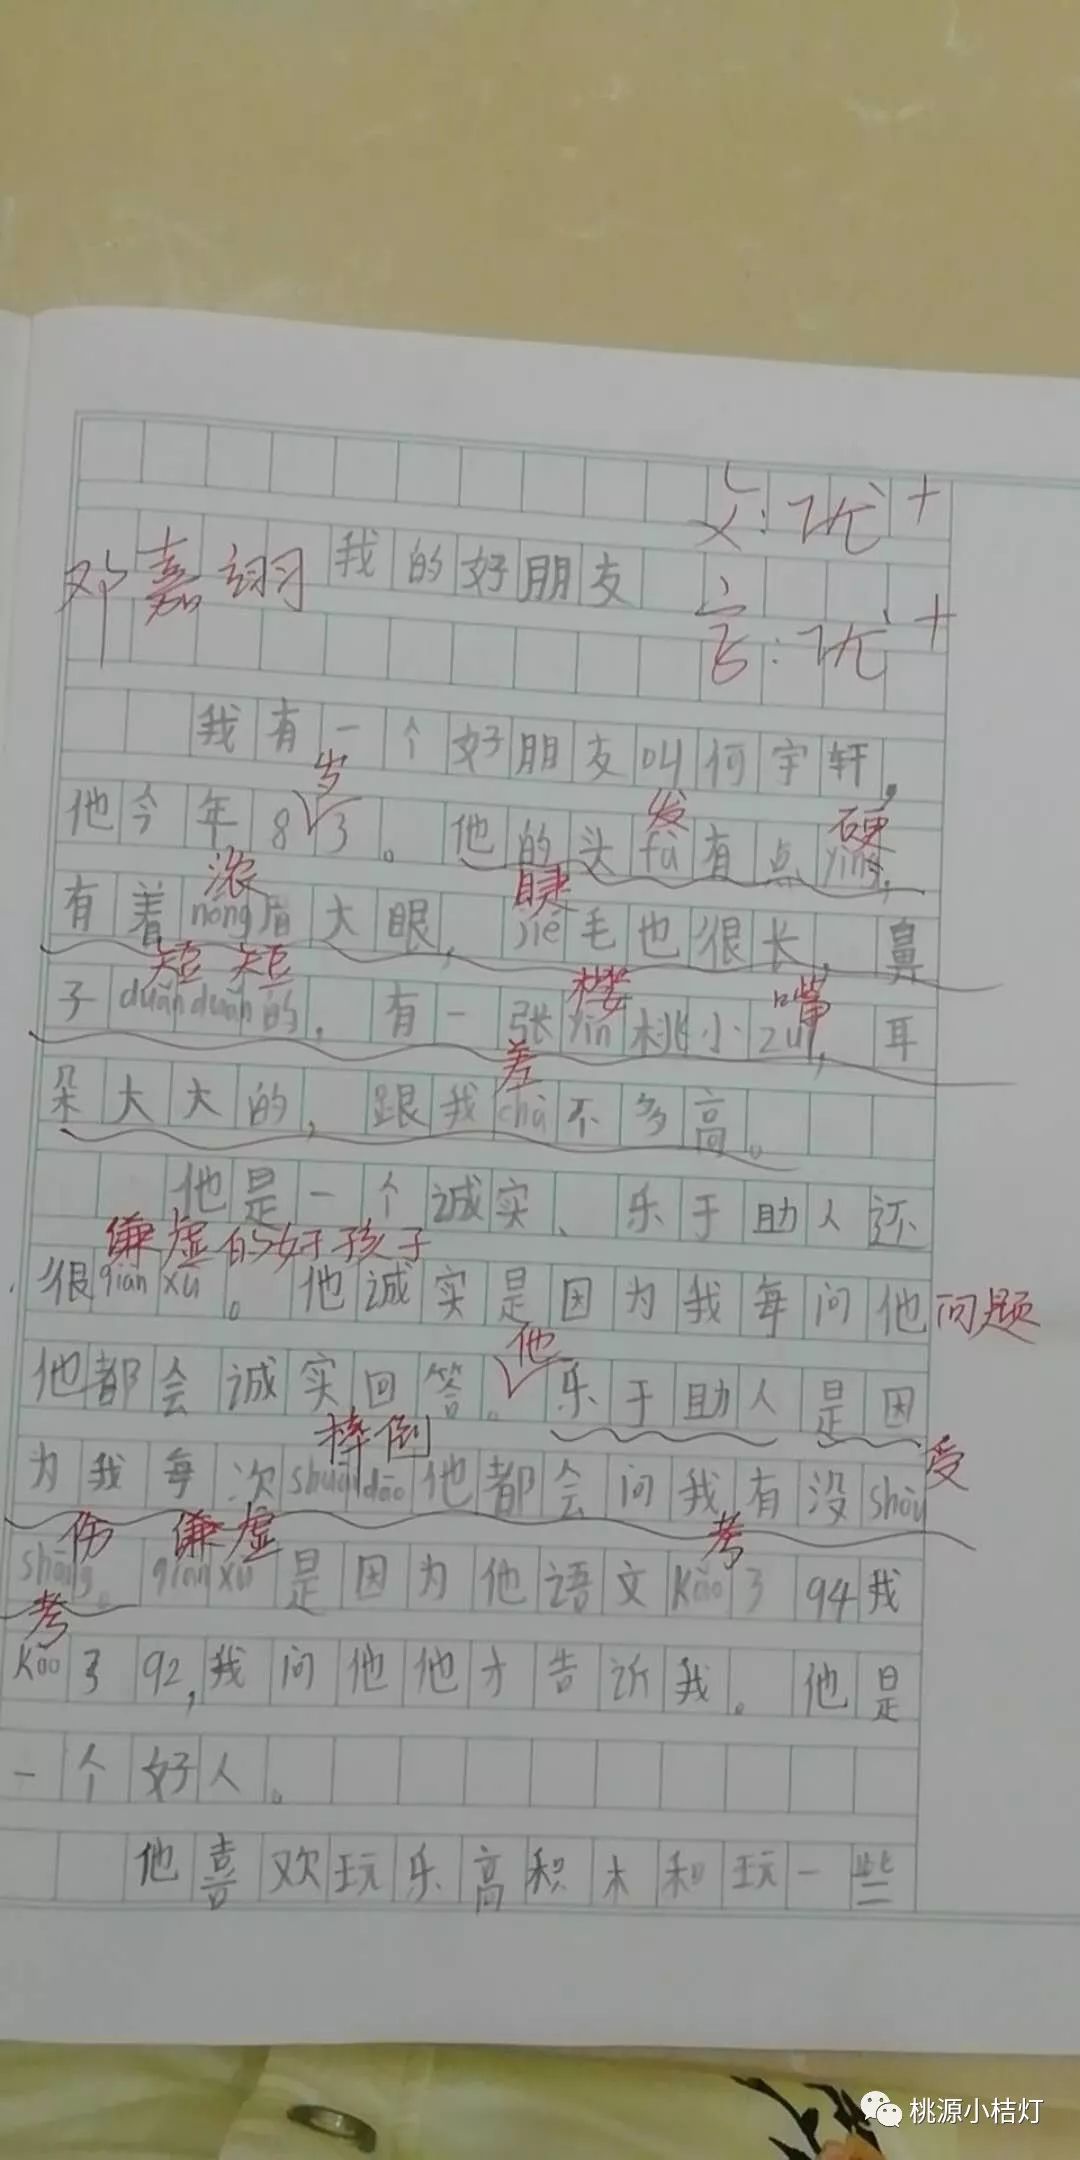 文:优+
邓嘉翊 我的好朋友
字:优+
我有一个好朋友叫何宇轩,
岁 发 硬
他今年8了。他的头fà有点yìng,
浓 睫
有着nóng眉大眼,jié毛也很长,鼻
短短 樱 嘴
子duǎnduǎn的,有一张yīn桃小zuǐ,耳
差
朵大大的,跟我chà不多高。
他是一个诚实、乐于助人还
谦虚的好孩子
很qiān xū。他诚实是因为我每问他问题
他
他都会诚实回答。乐于助人是因
摔倒 受
为我每次shuāi dǎo他都会问我有没shòu
伤 谦虚 考
shāng。qiān xū是因为他语文kǎo了94我
考
kǎo了92,我问他他才告诉我。他是
一个好人。
他喜欢玩乐高积木和玩一些
桃源小桔灯